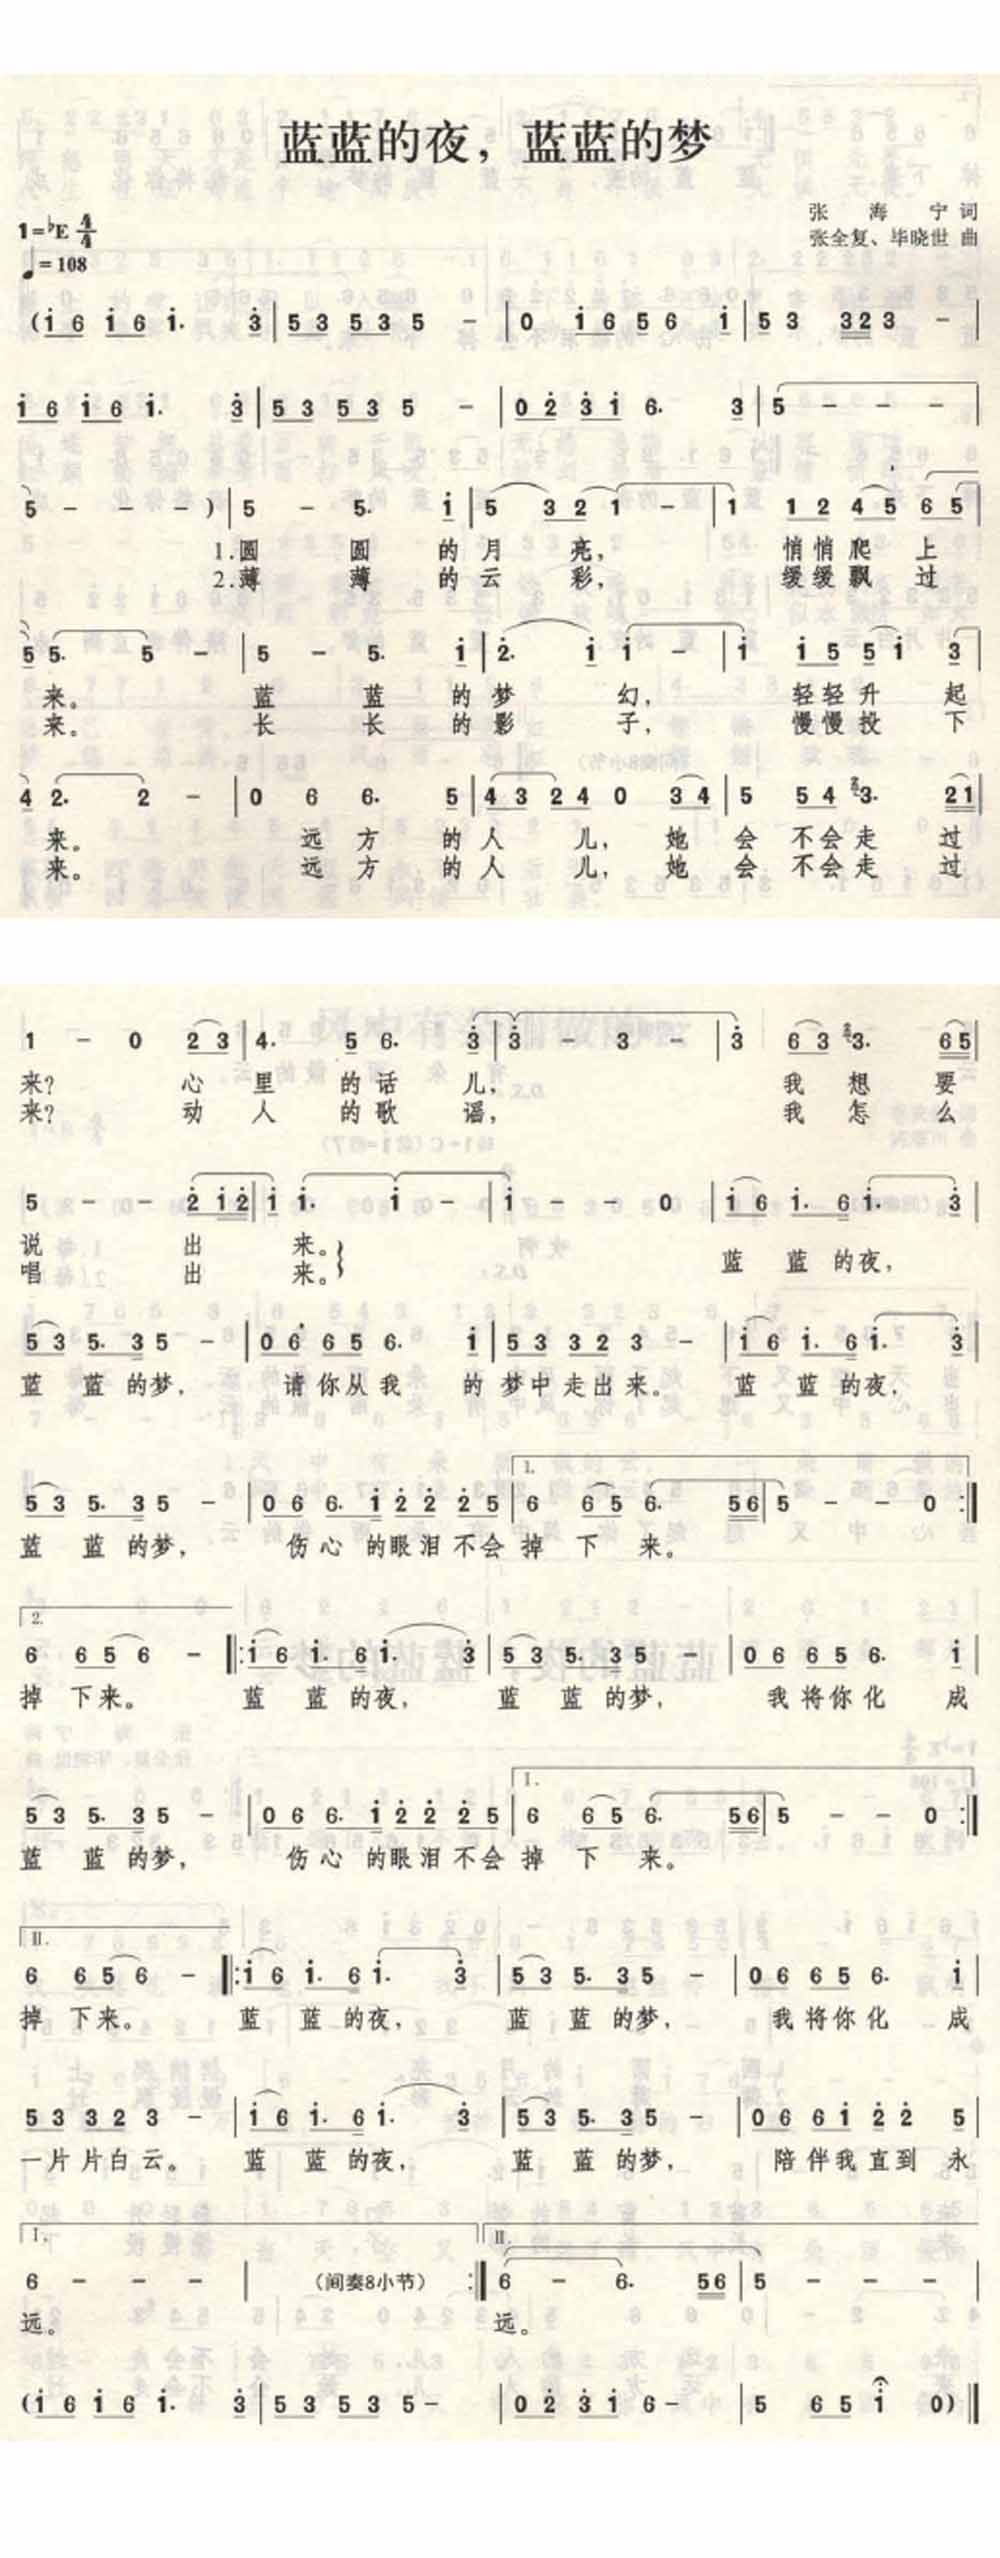 蓝蓝的夜，蓝蓝的梦
张 海 宁 词
1=♭E 4/4
张全复、毕晓世 曲
♩=108
(i̇ 6 i̇ 6 i̇. 3̇ | 5 3 5 3 5 - | 0 i̇ 6 5 6 i̇ | 5 3 3 2 3 - |
i̇ 6 i̇ 6 i̇. 3̇ | 5 3 5 3 5 - | 0 2̇ 3̇ i̇ 6. 3 | 5 - - - |
5 - - - ) | 5 - 5. i̇ | 5 3 2 1 - | 1 1 2 4 5 6 5 |
1.圆 圆 的 月 亮， 悄悄 爬 上
2.薄 薄 的 云 彩， 缓缓 飘 过
5 5. 5 - | 5 - 5. i̇ | 2̇. i̇ i̇ - | i̇ i̇ 5 5 i̇ 3̇ |
来。 蓝 蓝 的 梦 幻， 轻轻 升 起
来。 长 长 的 影 子， 慢慢 投 下
4 2. 2 - | 0 6 6. 5 | 4 3 2 4 0 3 4 | 5 5 4 3. 2 1 |
来。 远 方 的 人 儿， 她 会 不会 走 过
来。 远 方 的 人 儿， 她 会 不会 走 过
1 - 0 2 3 | 4. 5 6. 3̇ | 3̇ - 3 - | 3̇ 6 3 3. 6 5 |
来？ 心 里 的 话 儿， 我 想 要
来？ 动 人 的 歌 谣， 我 怎 么
5 - - 2̇ i̇ 2̇ | i̇ i̇. i̇ - | i̇ - - 0 | i̇ 6 i̇. 6 i̇. 3̇ |
说 出 来。
唱 出 来。
蓝 蓝 的夜，
5 3 5. 3 5 - | 0 6 6 5 6. i̇ | 5 3 3 2 3 - | i̇ 6 i̇. 6 i̇. 3̇ |
蓝 蓝 的梦， 请你从我 的 梦中 走出 来。 蓝 蓝 的夜，
1.
5 3 5. 3 5 - | 0 6 6. i̇ 2̇ 2̇ 2̇ 5 | 6 6 5 6. 5 6 | 5 - - 0 :|
蓝 蓝 的梦， 伤心 的眼泪 不会 掉 下 来。
2.
6 6 5 6 - |: i̇ 6 i̇. 6 i̇. 3̇ | 5 3 5. 3 5 - | 0 6 6 5 6. i̇ |
掉 下来。 蓝 蓝 的夜， 蓝 蓝 的梦， 我将你化 成
I.
5 3 5. 3 5 - | 0 6 6. i̇ 2̇ 2̇ 2̇ 5 | 6 6 5 6. 5 6 | 5 - - 0 :|
蓝 蓝 的梦， 伤心 的眼泪 不会 掉 下 来。
II.
6 6 5 6 - |: i̇ 6 i̇. 6 i̇. 3̇ | 5 3 5. 3 5 - | 0 6 6 5 6. i̇ |
掉 下来。 蓝 蓝 的夜， 蓝 蓝 的梦， 我将你化 成
5 3 3 2 3 - | i̇ 6 i̇. 6 i̇. 3̇ | 5 3 5. 3 5 - | 0 6 6 i̇ 2̇ 2̇ 5 |
一片 片白 云。 蓝 蓝 的夜， 蓝 蓝 的梦， 陪伴我直到 永
I. II.
6 - - - | （间奏8小节） :| 6 - 6. 5 6 | 5 - - - |
远。 远。
(i̇ 6 i̇ 6 i̇. 3̇ | 5 3 5 3 5 - | 0 2̇ 3̇ i̇ 6 - | 5 6 5 i̇ 0) |